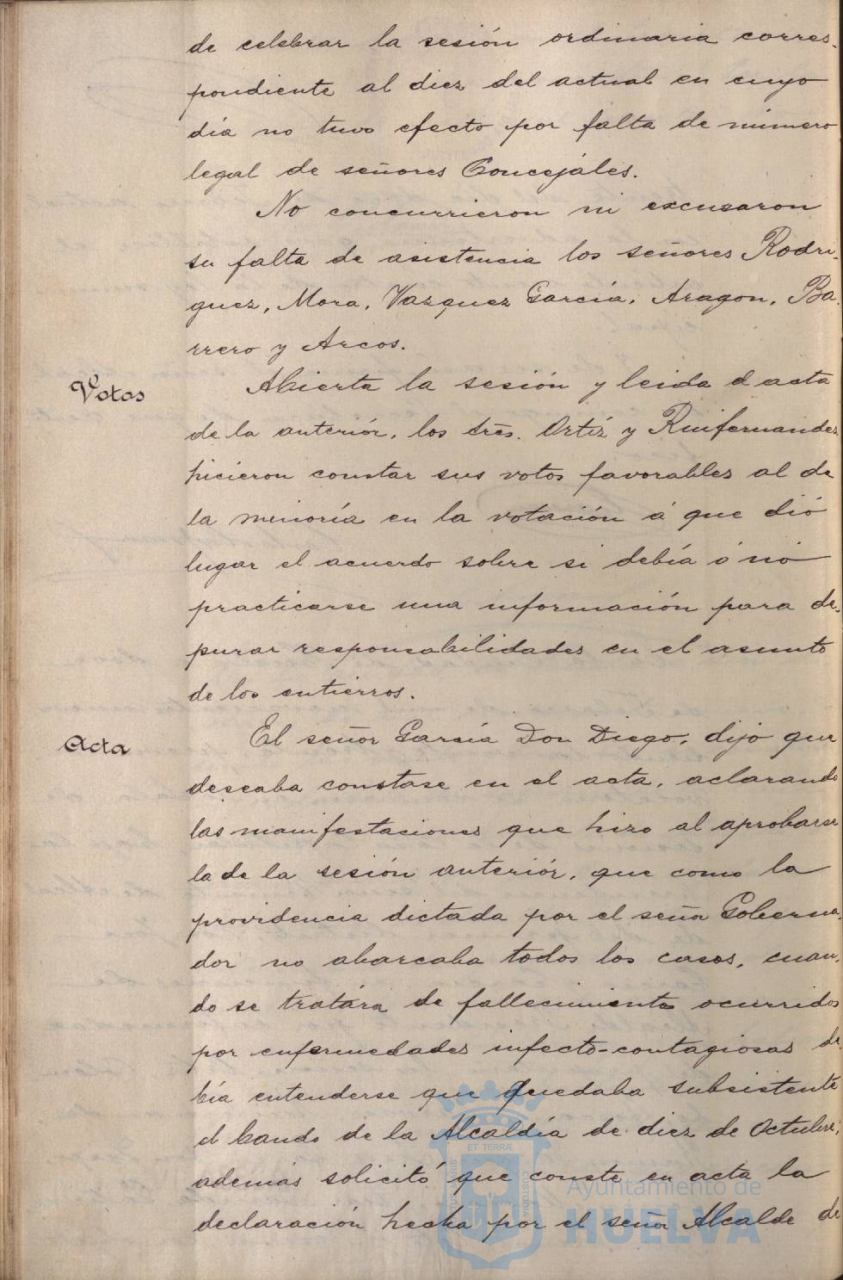 de celebrar la sesión ordinaria corres-
pondiente al diez del actual en cuyo
día no tuvo efecto por falta de número
legal de señores Concejáles.
No concurrieron ni excusaron
su falta de asistencia los señores Rodri-
guez, Mora, Vazquez García, Aragon, Ba-
rrero y Arcos.
Votos
Abierta la sesión y leida el acta
de la anteriór, los Sres. Ortíz y Ruifernandez
hicieron constar sus votos favorables al de
la menoría en la votación á que dió
lugar el acuerdo sobre si debía ó nó
practicarse una información para de-
purar responsabilidades en el asunto
de los entierros.
Acta
El señor García Don Diego, dijo que
deseaba constase en el acta, aclarando
las manifestaciones que hizo al aprobarse
la de la sesión anteriór, que como la
providencia dictada por el señor Goberna-
dor no abarcaba todos los casos, cuan-
do se tratára de fallecimientos ocurridos
por enfermedades infecto-contagiosas de-
bía entenderse que quedaba subsistente
el bando de la Alcaldía de diez de Octubre;
además solicitó que conste en acta la
declaración hecha por el señor Alcalde de
ET TERRA
Ayuntamiento de
HUELVA